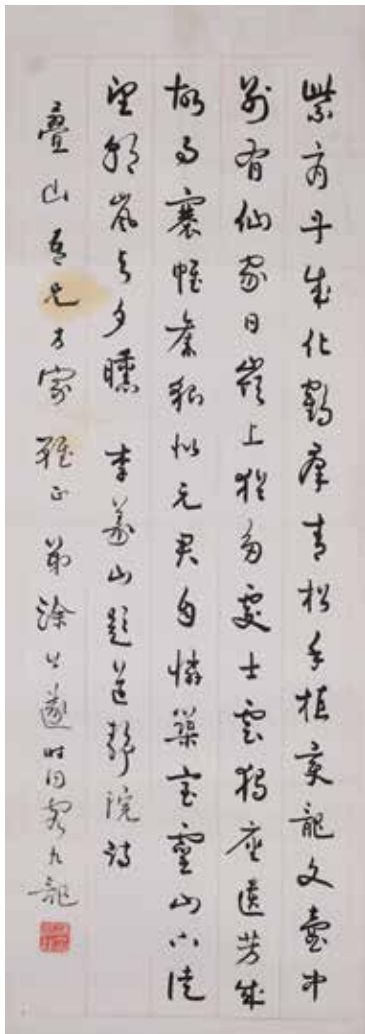 紫府丹成化鶴羣青松手植變龍文壺中
別有仙家日嶺上猶多處士雲獨座遺芳成
故事褰帷舊貌似元君自憐築室靈山下徒
望朝嵐與夕曛 李義山題道靜院詩
疊山吾兄方家雅正 弟涂公遂時同客九龍